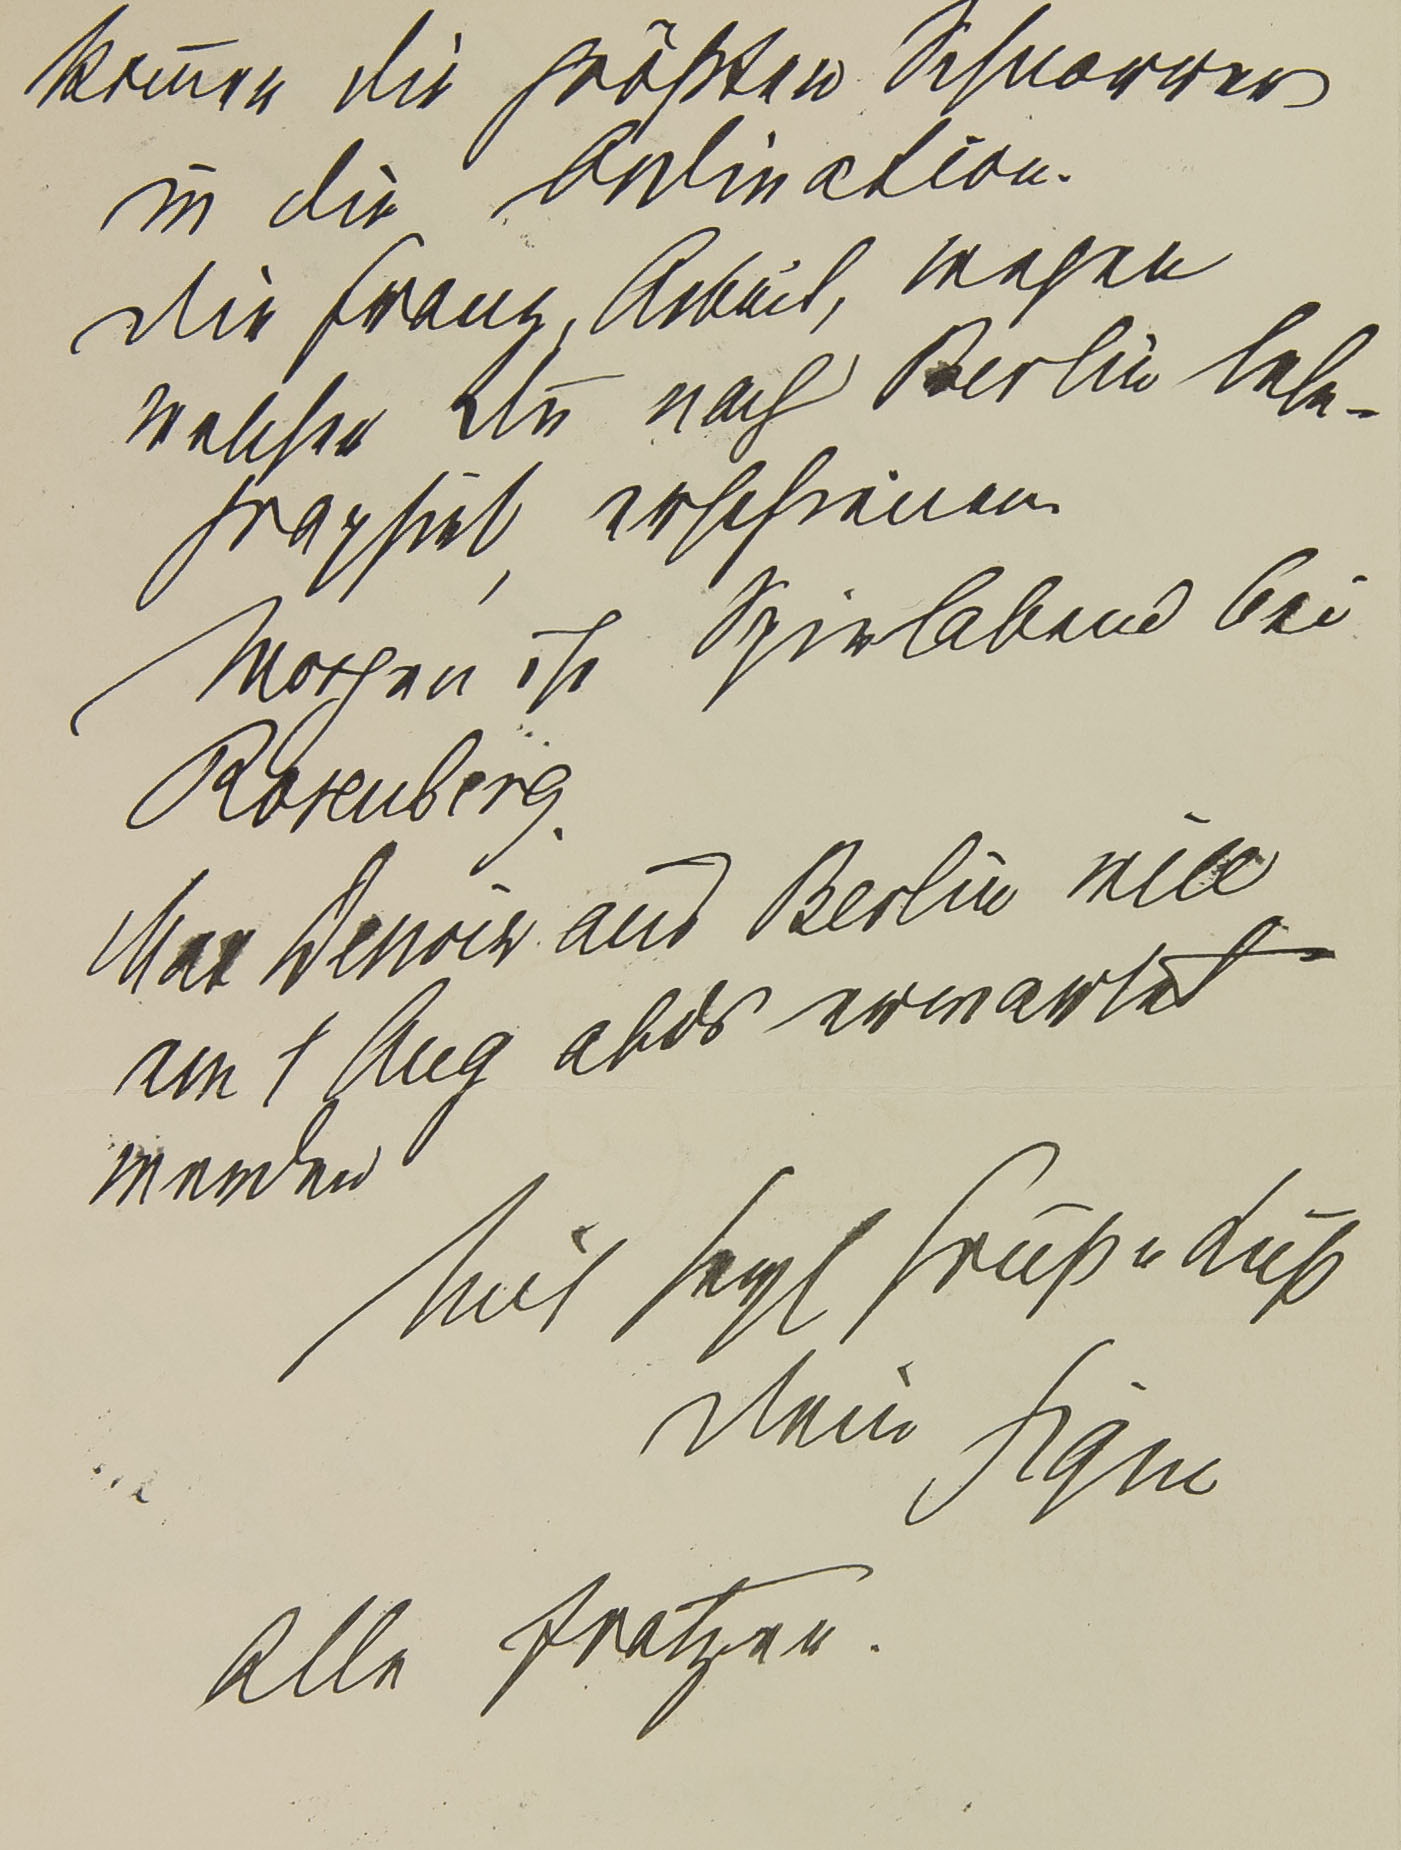 kom̄en die größten Schnorrer
in die Ordination.
Die franz. Arbeit, wegen
welcher Du nach Berlin tele-
graphirt, erschienen.
Morgen ist Spielabend bei
Rosenberg.
Max Dessoir aus Berlin will
am 1 Aug abds erwartet
werden
Mit herzl Gruß u Kuß
Dein Sigm
Alle Fratzen.